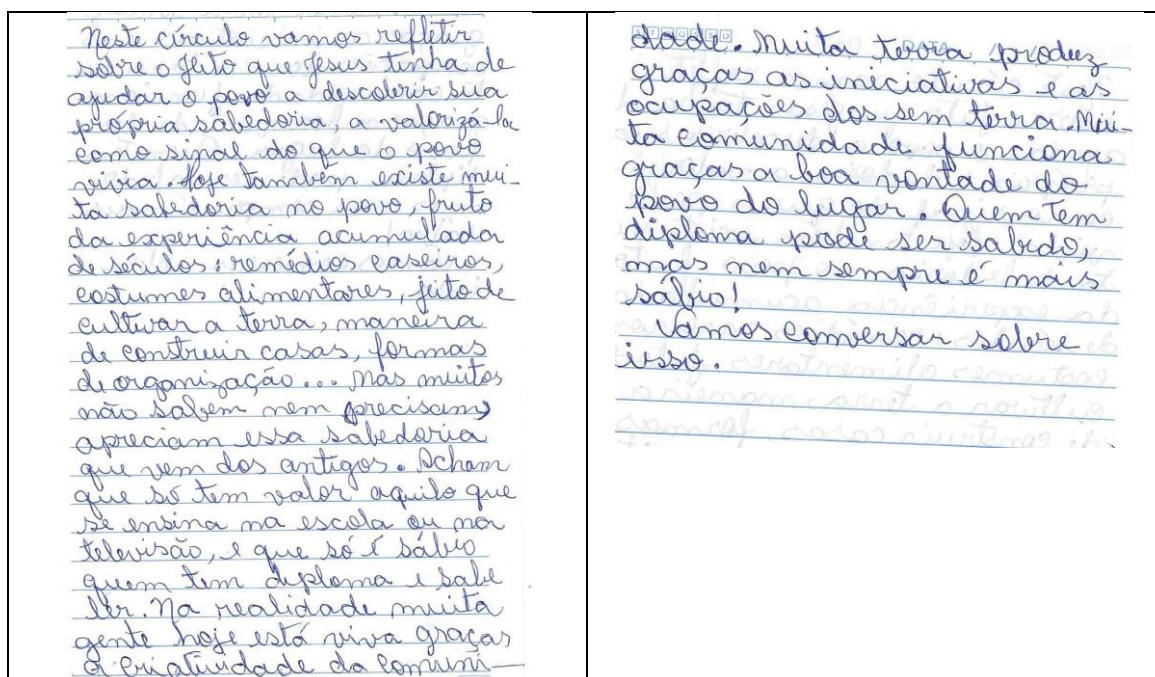 Neste círculo vamos refletir
sobre o jeito que Jesus tinha de
ajudar o povo a descobrir sua
própria sabedoria, a valorizá-la
como sinal do que o povo
vivia. Hoje também existe mui-
ta sabedoria no povo, fruto
da experiência acumulada
de séculos: remédios caseiros,
costumes alimentares, jeito de
cultivar a terra, maneira
de construir casas, formas
de organização... Mas muitos
não sabem nem (precisam)
apreciam essa sabedoria
que vem dos antigos. Acham
que só tem valor aquilo que
se ensina na escola ou na
televisão, e que só é sábio
quem tem diploma e sabe
ler. Na realidade muita
gente hoje está viva graças
a criatividade da comuni-
dade. Muita terra produz
graças as iniciativas e as
ocupações dos sem terra. Mui-
ta comunidade funciona
graças a boa vontade do
povo do lugar. Quem tem
diploma pode ser sabido,
mas nem sempre é mais
sábio!
Vamos conversar sobre
isso.